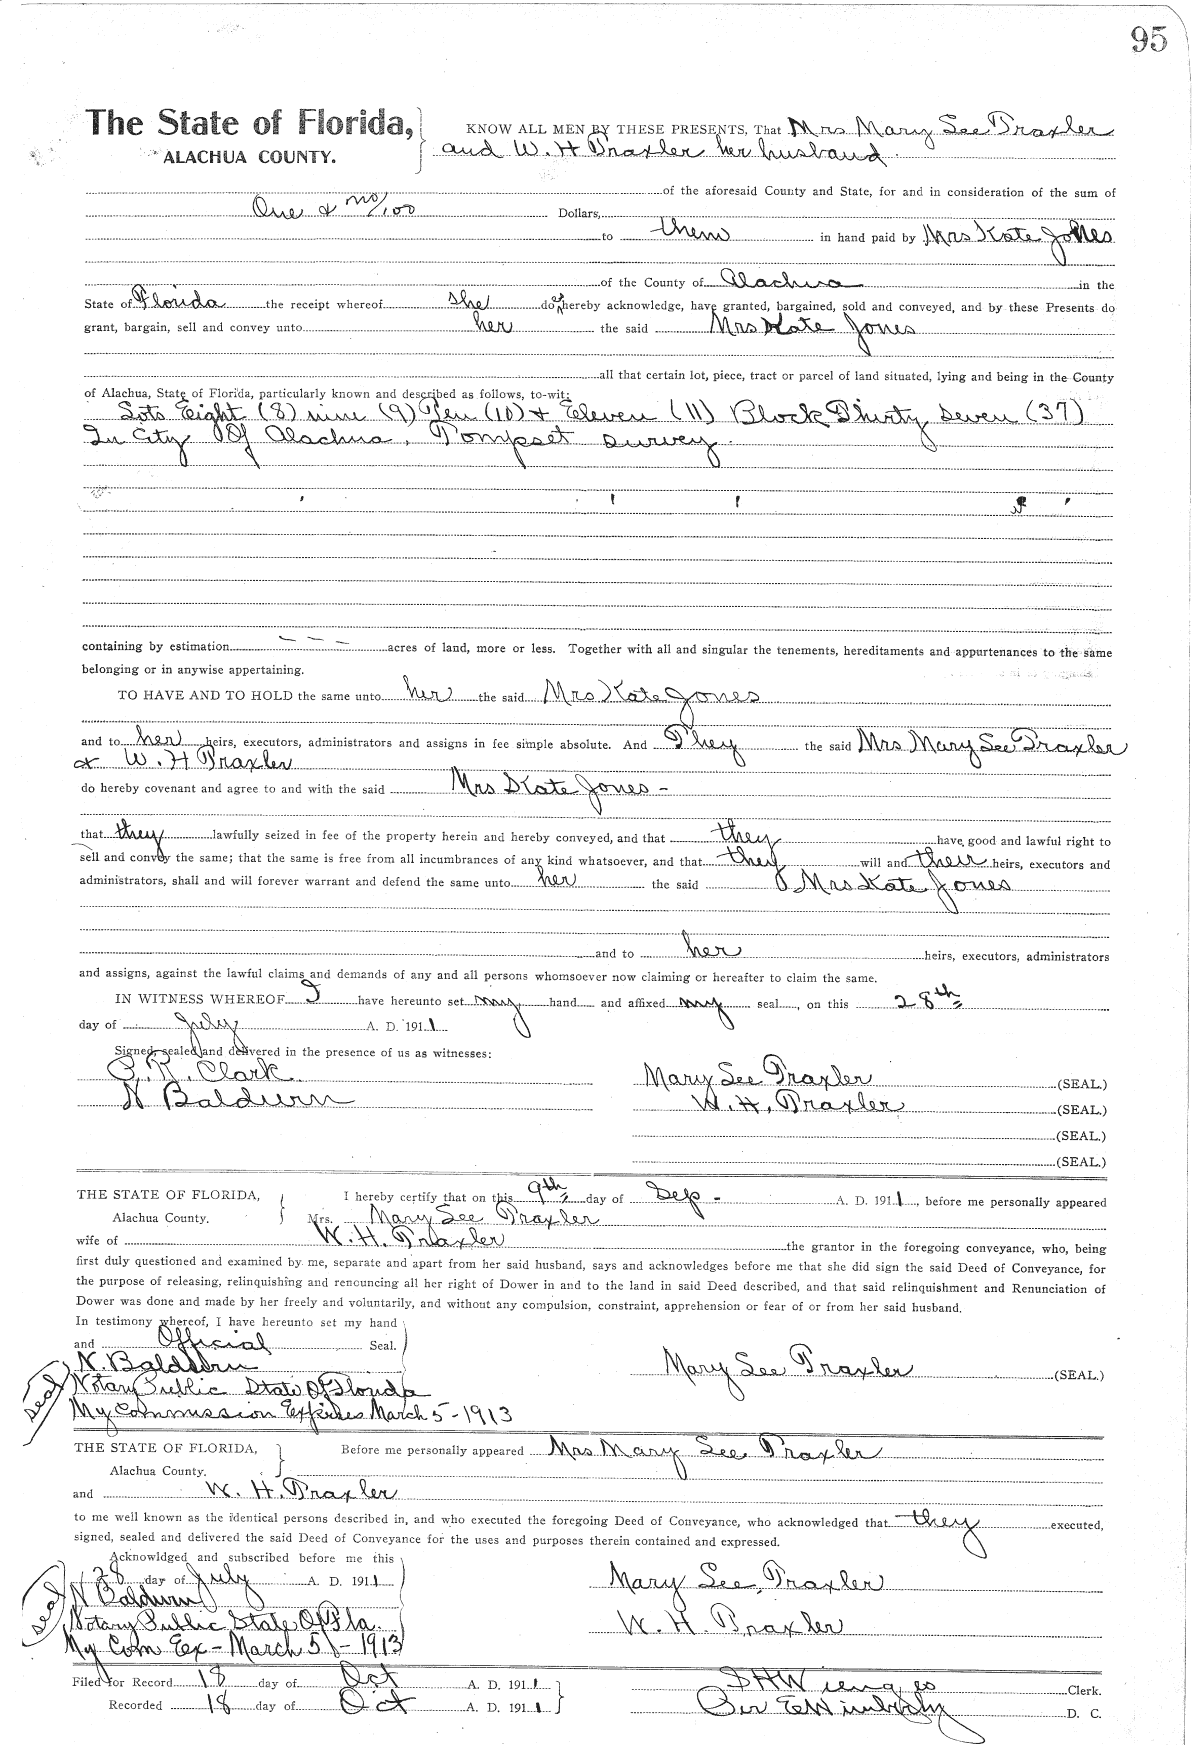 95
The State of Florida, KNOW ALL MEN BY THESE PRESENTS, That Mrs Mary Lee Traxler
ALACHUA COUNTY. and W. H Traxler her husband.
of the aforesaid County and State, for and in consideration of the sum of
One & no/100 Dollars,
to them in hand paid by Mrs Kate Jones
of the County of Alachua in the
State of Florida the receipt whereof she do hereby acknowledge, have granted, bargained, sold and conveyed, and by these Presents do
grant, bargain, sell and convey unto her the said Mrs Kate Jones
all that certain lot, piece, tract or parcel of land situated, lying and being in the County
of Alachua, State of Florida, particularly known and described as follows, to-wit:
Lots Eight (8) nine (9) Ten (10) & Eleven (11) Block Thirty seven (37)
In City Of Alachua, Tompset survey.
containing by estimation - - - acres of land, more or less. Together with all and singular the tenements, hereditaments and appurtenances to the same
belonging or in anywise appertaining.
TO HAVE AND TO HOLD the same unto her the said Mrs Kate Jones
and to her heirs, executors, administrators and assigns in fee simple absolute. And They the said Mrs Mary Lee Traxler
& W. H Traxler
do hereby covenant and agree to and with the said Mrs Kate Jones -
that they lawfully seized in fee of the property herein and hereby conveyed, and that they have good and lawful right to
sell and convey the same; that the same is free from all incumbrances of any kind whatsoever, and that they will and their heirs, executors and
administrators, shall and will forever warrant and defend the same unto her the said Mrs Kate Jones
and to her heirs, executors, administrators
and assigns, against the lawful claims and demands of any and all persons whomsoever now claiming or hereafter to claim the same.
IN WITNESS WHEREOF I have hereunto set my hand and affixed my seal, on this 28th
day of July A. D. 1911.
Signed, sealed and delivered in the presence of us as witnesses:
R. Clark Mary Lee Traxler (SEAL.)
N Baldwin W. H. Traxler (SEAL.)
(SEAL.)
(SEAL.)
THE STATE OF FLORIDA, I hereby certify that on this 9th day of Sep - A. D. 1911, before me personally appeared
Alachua County. Mrs. Mary Lee Traxler
wife of W. H. Traxler the grantor in the foregoing conveyance, who, being
first duly questioned and examined by me, separate and apart from her said husband, says and acknowledges before me that she did sign the said Deed of Conveyance, for
the purpose of releasing, relinquishing and renouncing all her right of Dower in and to the land in said Deed described, and that said relinquishment and Renunciation of
Dower was done and made by her freely and voluntarily, and without any compulsion, constraint, apprehension or fear of or from her said husband.
In testimony whereof, I have hereunto set my hand
and Official Seal.
N. Baldwin Mary Lee Traxler (SEAL.)
seal Notary Public State Of Florida
My Commission Expires March 5 - 1913
THE STATE OF FLORIDA, Before me personally appeared Mrs Mary Lee Traxler
Alachua County.
and W. H. Traxler
to me well known as the identical persons described in, and who executed the foregoing Deed of Conveyance, who acknowledged that they executed,
signed, sealed and delivered the said Deed of Conveyance for the uses and purposes therein contained and expressed.
Acknowldged and subscribed before me this
28 day of July A. D. 1911 Mary Lee Traxler
N Baldwin
seal Notary Public State Of Fla. W. H. Traxler
My Com Ex - March 5 - 1913
Filed for Record 18 day of Oct A. D. 1911 S H Wienges Clerk.
Recorded 18 day of Oct A. D. 1911 Per E Wimberly D. C.